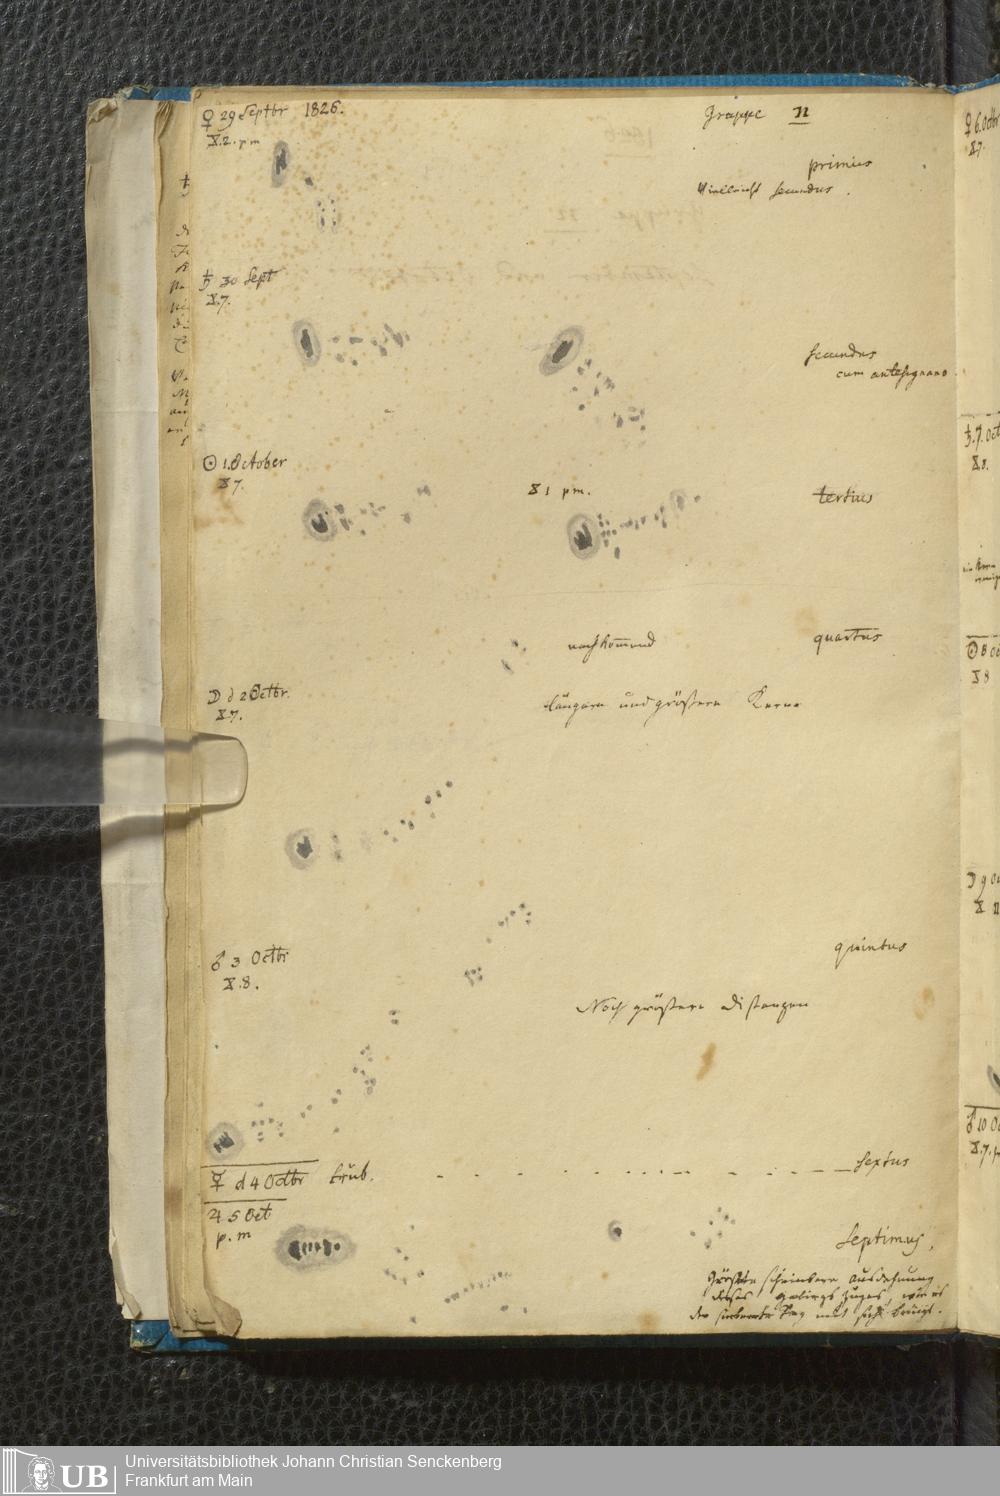 ♀ 29 Septbr 1826.
Gruppe n
X.2. pm
primus
Vielleicht secundus.
♄ 30 Sept
X.7.
secundus
cum antesignano
☉ 1. October
X 7.
X 1 pm.
tertius
nachkom̅end
quartus
☽ d 2 Octbr.
X.7.
längere und größere Kerne
♂ 3 Octbr
X.8.
quintus
Noch größere Distanzen
☿ d 4 Octbr trüb.
sextus
♃ 5 Oct
p. m
Septimus,
Größte scheinbare Ausdehnung
dieses Gebirgs Zuges, wie es
der siebente Tag mit sich bringt.
♀ 6. Octbr
X7.
♄. 7. Oct
X.8.
☉ 8 Oc
X 8
☽ 9 Oc
♂ 10 Oc
X.7.
Universitätsbibliothek Johann Christian Senckenberg
Frankfurt am Main
UB